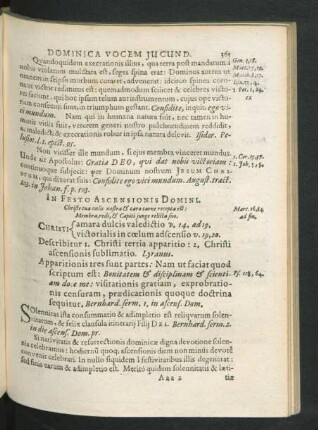 DOMINICA VOCEM JUCUND. 369
Quandoquidem execrationis illius, qua terra post mandatum à
nobis violatum mulctata est, seges spina erat: Dominus autem ut
eam in seipso morbum curaret, advenerat: idcirco spineâ coro-
nâ victor redimitus est: quemadmodum scilicet & celebres victo-
res faciunt, qui hoc ipsum telum aut instrumentum, cujus ope victo-
riam consecuti sunt, in triumphum gestant. Confidite, inquit, ego vi-
ci mundum. Nam qui in humana natura fuit, nec tamen in hu-
mani corruptione fuit, veterem generi nostro pulchritudinem reddidit,
& maledicti & execrationis robur in ipsa natura delevit. Isidor. Pe-
lusiot. l. 1. epist. 95.
Non vicisset ille mundum, si ejus membra vinceret mundus.
Unde ait Apostolus: Gratia DEO, qui dat nobis victoriam:
continuoque subjecit: per Dominum nostrum JESUM CHRI-
STUM, qui dixerat suis: Confidite ego vici mundum. August. tract.
103. in Johan. f. p. 113.
IN FESTO ASCENSIONIS DOMINI.
Christe tua coelis nostra & caro carne recepta est:
Membra, redi, & Capiti junge relicta suo.
CHRISTI amara dulcis valedictio v. 14, ad 19,
victorialis in coelum adscensio v. 19, 20.
Describitur 1. Christi tertia apparitio: 2, Christi
ascensionis sublimatio. Lyranus.
Apparitionis tres sunt partes: Nam ut faciat quod
scriptum est: Bonitatem & disciplinam & scienti-
am doce me: visitationis gratiam, exprobratio-
nis censuram, praedicationis quoque doctrina
sequitur. Bernhard. serm. 1, in ascens. Dom.
Solennitas ista consummatio & adimpletio est reliquarum solen-
nitatum, & felix clausula itinerarij Filij DEI. Bernhard. serm. 2.
in die ascens. Dom. pr.
Si nativitatis & resurrectionis dominicae digna devotione solen-
nia celebramus: hodiernâ quoq, ascensionis diem non minùs devotè
convenit celebrare. In nullo siquidem à festivitatibus illis degenerat:
sed finis earum & adimpletio est. Meritò quidem solennitatis & laeti-
Aaa 2 tiae
Gen. 3, 18.
1. Cor. 15, 57.
1. Joh. 5, 4.
Marc. 16, 14
ad fin.